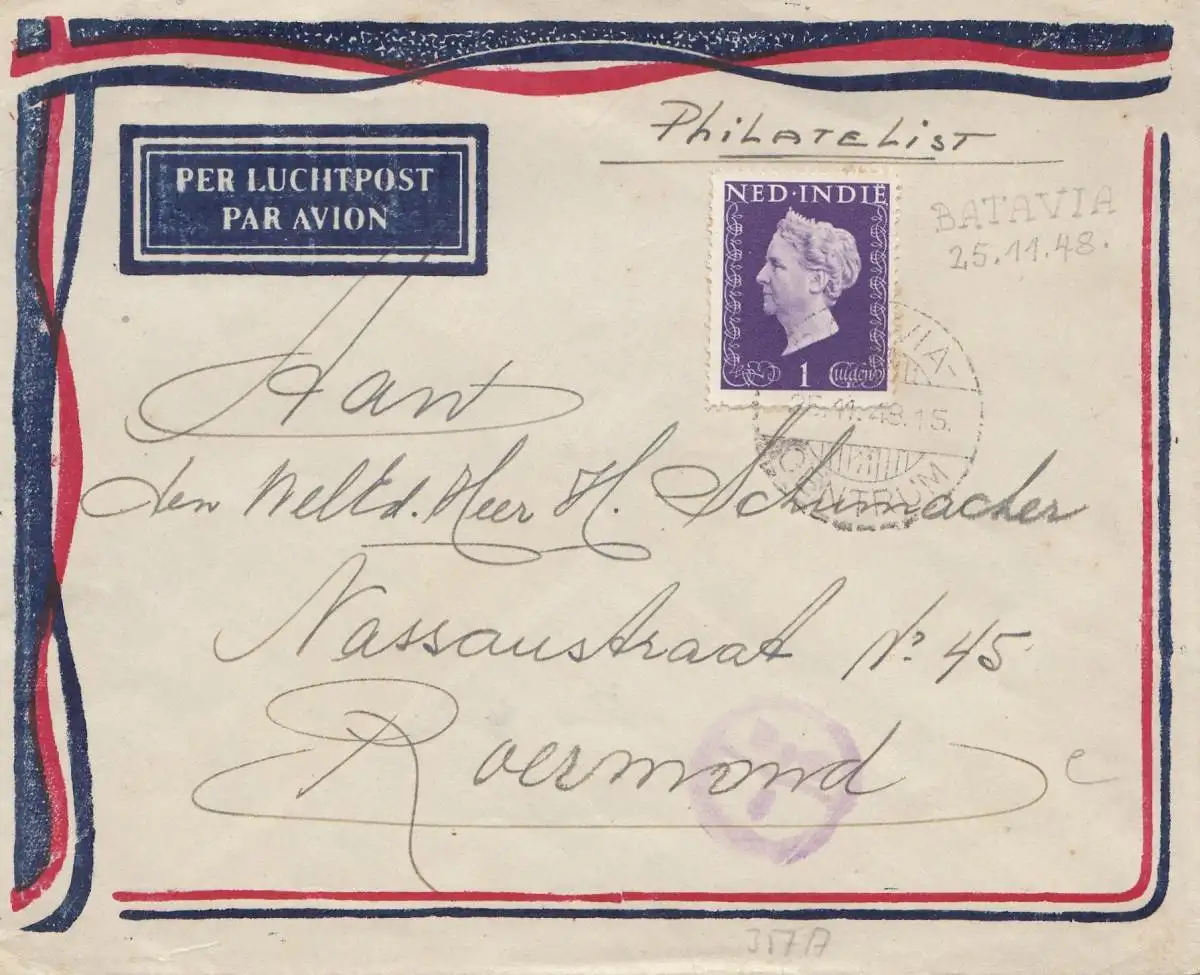 Philatelist
PER LUCHTPOST
PAR AVION
NED·INDIË
1 Gulden
BATAVIA
25.11.48.
VIA-
25.11.48.15.
CENTRUM
Aan
den WelEd. Heer H. Schumacher
Nassaustraat No. 45
Roermond
357A